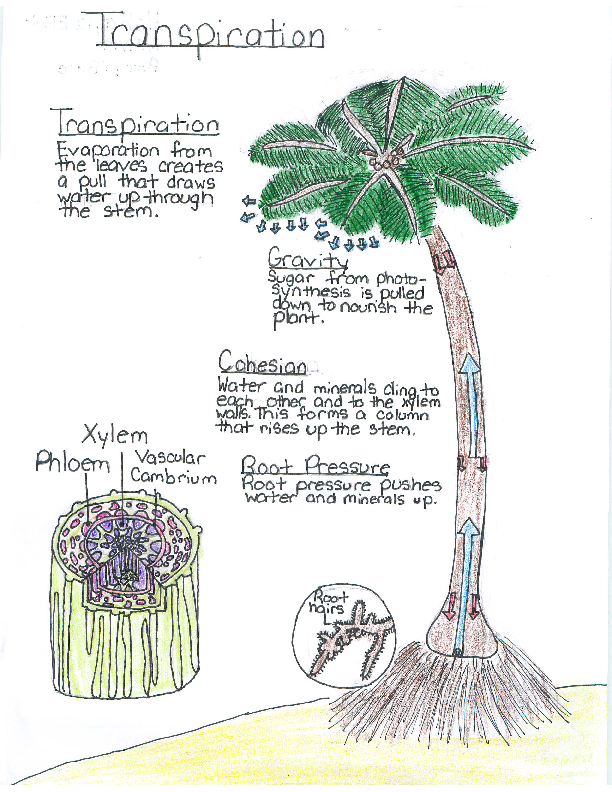 Transpiration
Transpiration
Evaporation from
the leaves creates
a pull that draws
water up through
the stem.
Gravity
Sugar from photo-
synthesis is pulled
down to nourish the
plant.
Cohesian
Water and minerals cling to
each other and to the xylem
walls. This forms a column
that rises up the stem.
Root Pressure
Root pressure pushes
water and minerals up.
Xylem
Phloem
Vascular
Cambrium
Root
hairs